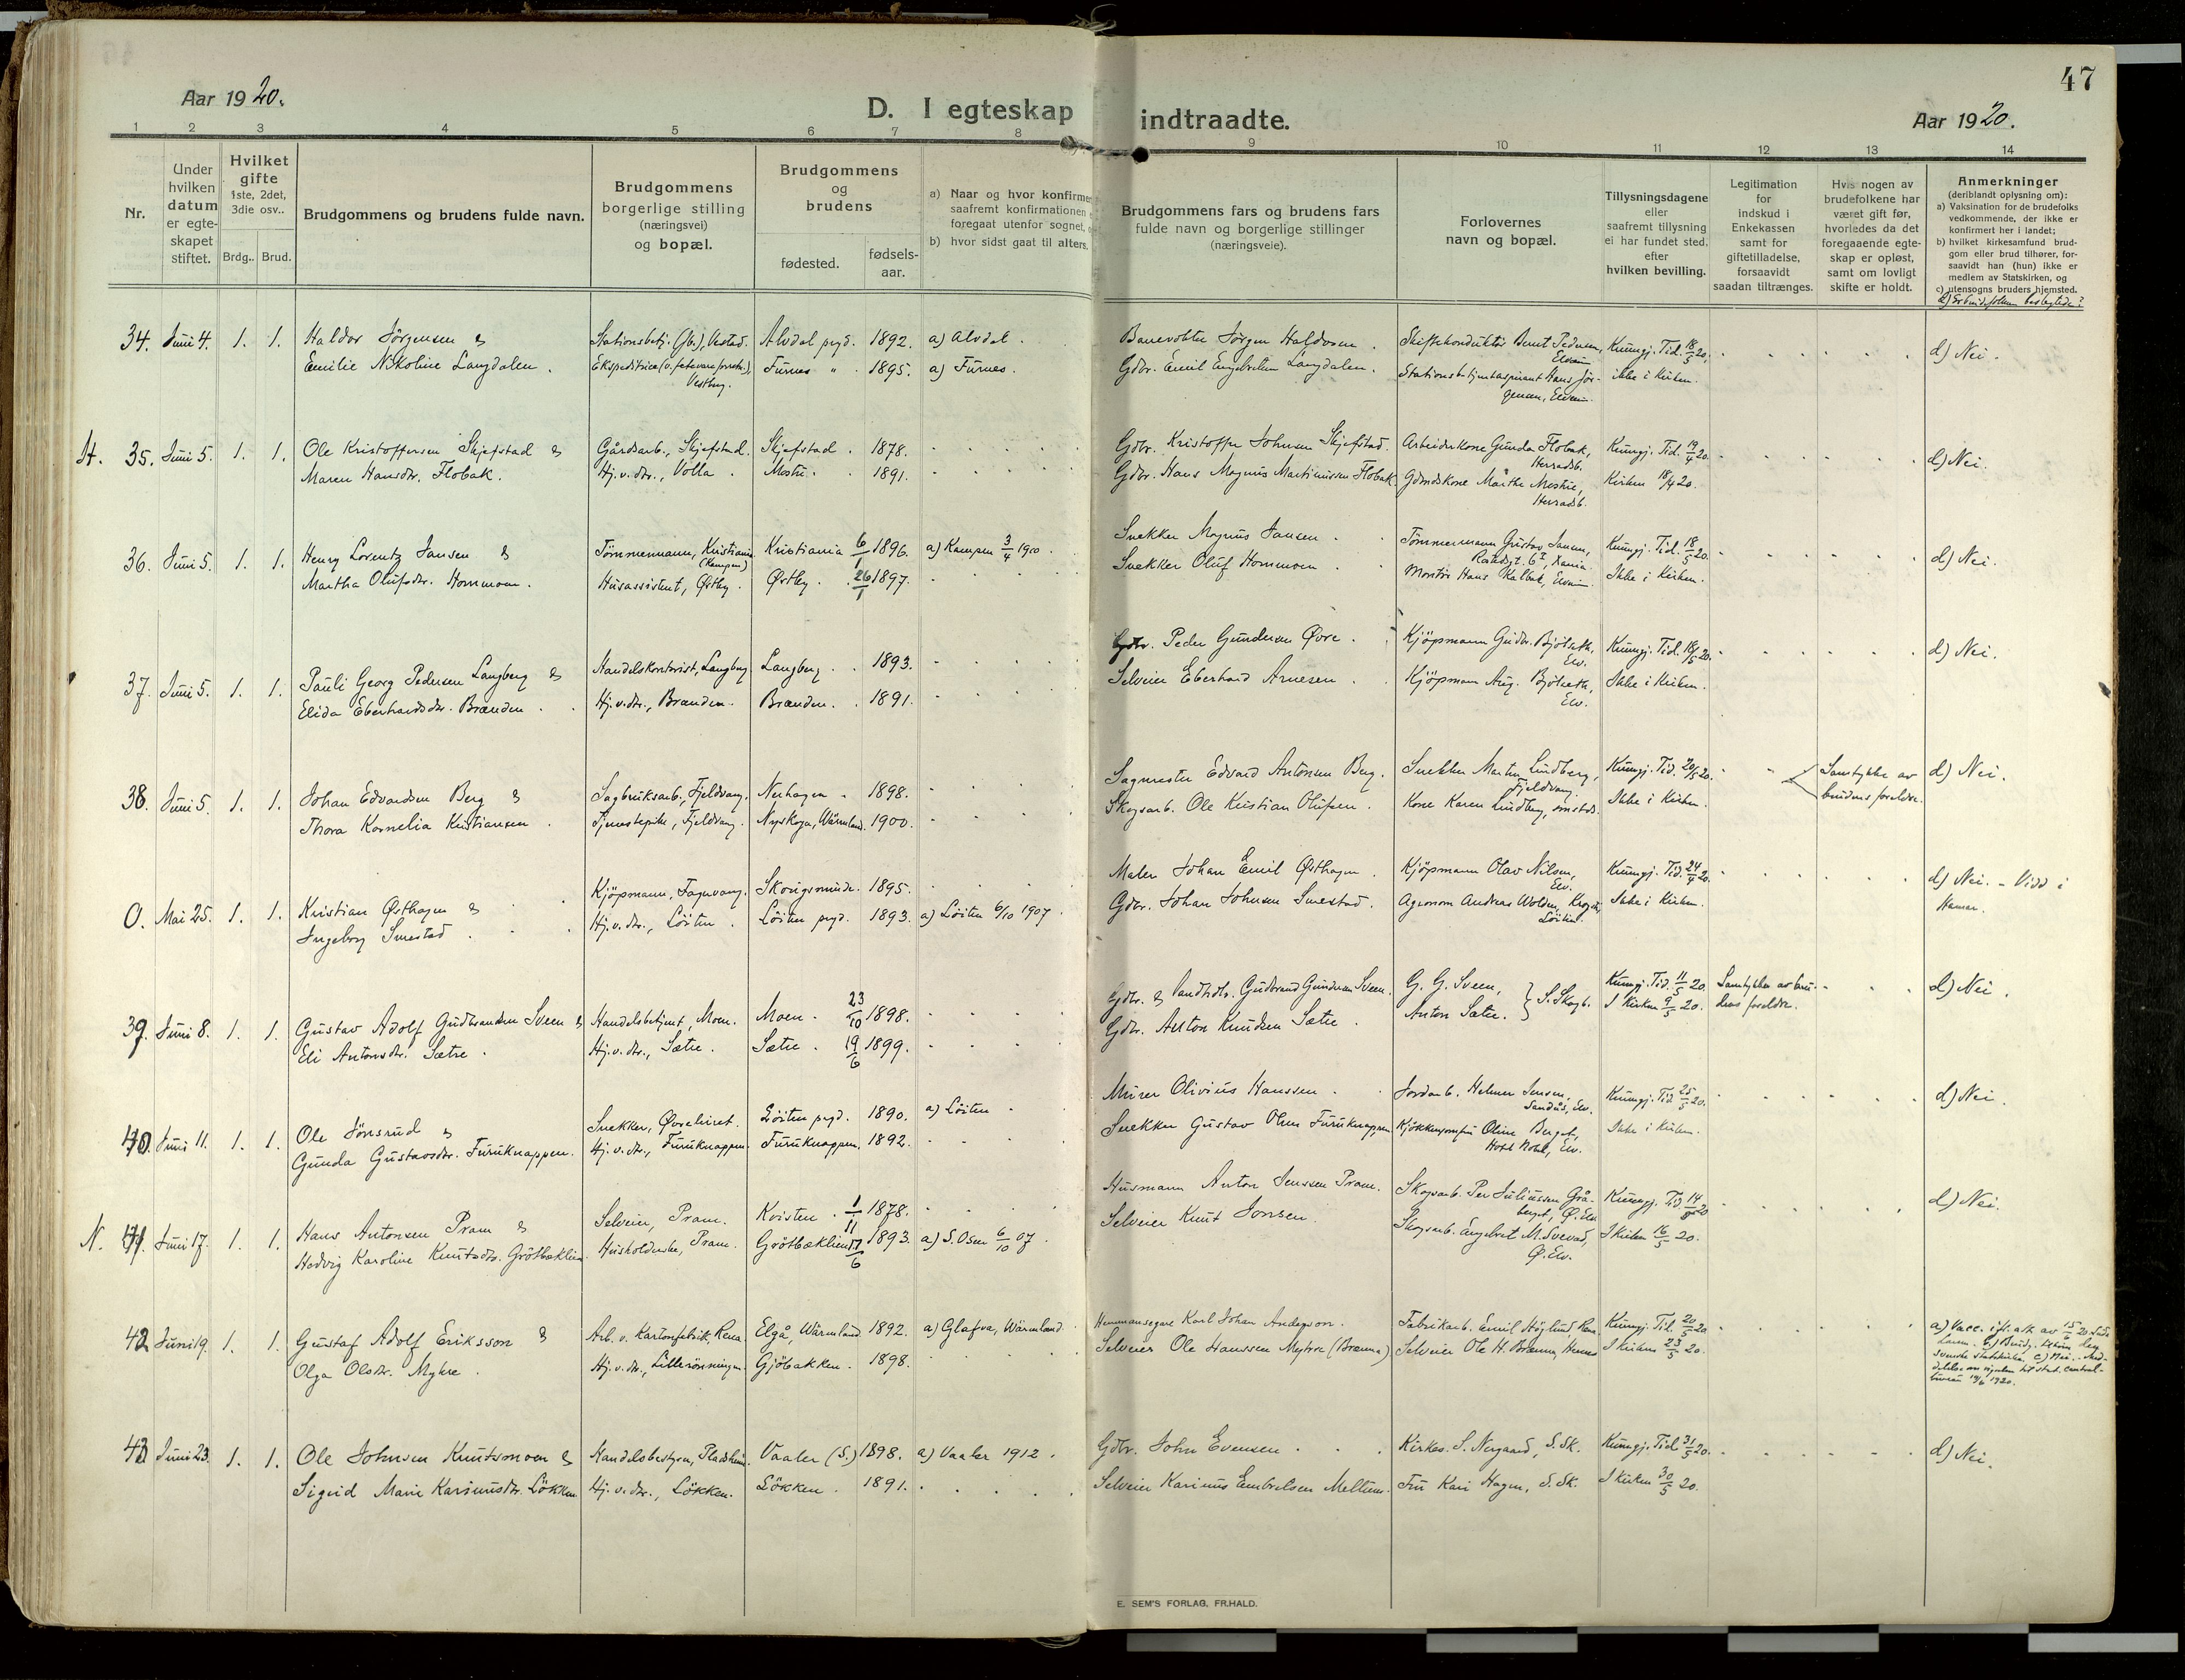 47
Aar 1920.
D. I egteskap indtraadte.
Aar 1920.
1 2 3 4 5 6 7 8 9 10 11 12 13 14
Nr.
Under hvilken datum er egteskapet stiftet.
Hvilket gifte 1ste, 2det, 3die osv..
Brdg.. Brud.
Brudgommens og brudens fulde navn.
Brudgommens borgerlige stilling (næringsvei) og bopæl.
Brudgommens og brudens
fødested.
fødsels-aar.
a) Naar og hvor konfirmer
saafremt konfirmationen
foregaat utenfor sognet,
b) hvor sidst gaat til alters.
Brudgommens fars og brudens fars
fulde navn og borgerlige stillinger
(næringsveie).
Forlovernes
navn og bopæl.
Tillysningsdagene
eller
saafremt tillysning
ei har fundet sted.
efter
hvilken bevilling.
Legitimation
for
indskud i
Enkekassen
samt for
giftetilladelse,
forsaavidt
saadan tiltrænges.
Hvis nogen av
brudefolkene har
været gift før,
hvorledes da det
foregaaende egte-
skap er opløst,
samt om lovligt
skifte er holdt.
Anmerkninger
(deriblandt oplysning om):
a) Vaksination for de brudefolks
vedkommende, der ikke er
konfirmert her i landet;
b) hvilket kirkesamfund brud-
gom eller brud tilhører, for-
saavidt han (hun) ikke er
medlem av Statskirken, og
c) utensogns bruders hjemsted.
d) Er brudefolkene beslegtede?
34. Juni 4. 1. 1. Haldor Jörgensen &
Emilie Nikoline Langdalen.
Stationsbetj. (Jb.), Vestad. Alvdal prgd. 1892. a) Alvdal.
Furnes " 1895. a) Furnes.
Banevokter Jörgen Haldorsen.
Gdbr. Emil Engebretsen Langdalen.
Skiftekonduktör Bernt Pedersen, Elverum
Stationsbetjentaspirant Hans Jör-
gensen, Elverum
Kumgj. Tid. 18/5 20.
ikke i Kirken.
d) Nei.
35. Juni 5. 1. 1. Ole Kristoffersen Skjefstad &
Maren Hansdtr. Flobak.
Gårdsarb., Skjefstad. Skjefstad. 1878.
Hj. v. dtr., Volla. 1891.
Gdbr. Kristoffer Johnsen Skjefstad.
Gdbr. Hans Magnus Martinussen Flobak
Arbeiderkone Gunda Flobak,
Herradsb.
Kumgj. Tid. 19/4 20.
Kirken 18/4 20.
d) Nei.
36. Juni 5. 1. 1. Henry Lorentz Jansen &
Martha Olufsdtr. Hommoen.
Tömmermann, Kristiania (Kampen) Kristiania 6/1 1896. a) Kampen 3/4 1910.
Husassistent, Østby. Østby. 26/1 1897.
Snekker Magnus Jansen.
Snekker Oluf Hommoen.
Tömmermann Gustav Jansen,
Montör Hans Kalbak, Elverum
Kumgj. Tid. 18/5 20.
Ikke i Kirken.
d) Nei.
37. Juni 5. 1. 1. Pauli Georg Pedersen Langberg &
Elida Eberhardsdtr. Brænden.
Handelskontorist, Langberg Langberg. 1893.
Hj. v. dtr., Brænden. Brænden. 1891.
Gdbr. Peder Gundersen Øvre.
Selveier Eberhard Arnesen.
Kjöpmann Gudbr. Bjölseth, Elv.
Kjöpmann Aug. Bjölseth, Elv.
Kumgj. Tid. 18/5 20.
Ikke i Kirken.
d) Nei.
38. Juni 5. 1. 1. Johan Edvardsen Berg &
Thora Kornelia Kristiansen.
Sagbruksarb., Fjeldvang. Nerhagen. 1898.
Tjenestepike, Fjeldvang. Nyskoga, Wärmland. 1900.
Sagmester Edvard Antonsen Berg.
Skogsarb. Ole Kristian Olufsen.
Snekker Martin Lindberg, Fjeldvang.
Kone Karen Lindberg, smstds.
Kumgj. Tid. 20/5 20.
Ikke i Kirken.
Samtykke av
brudens foreldre.
d) Nei.
0. Mai 25. 1. 1. Kristian Østhagen &
Ingeborg Smestad.
Kjöpmann, Fagervang. 1895.
Hj. v. dtr., Löiten. Löiten prgd. 1893. a) Löiten 6/10 1907.
Maler Johan Emil Østhagen.
Gdbr. Johan Johnsen Smestad.
Kjöpmann Olav Nilsen, Elv.
Agronom Andreas Wolden, Löiten.
Kumgj. Tid. 24/4 20.
Ikke i Kirken.
d) Nei. - Viet i
Hamar.
39. Juni 8. 1. 1. Gustav Adolf Gudbrandsen Sveen &
Eli Antonsdtr. Sætre.
Handelsbetjent, Moen. Moen. 23/10 1898.
Hj. v. dtr., Sætre. Sætre. 19/6 1899.
Gdbr. & landhdlr. Gudbrand Gundersen Sveen.
Gdbr. Anton Knudsen Sætre.
G. G. Sveen,
Anton Sætre. } S. Skogb.
Kumgj. Tid. 11/5 20.
I Kirken 9/5 20.
Samtykke av bru-
dens foreldre.
d) Nei.
40. Juni 11. 1. 1. Ole Jönsrud &
Gunda Gustavsdtr. Furuknappen.
Snekker, Øvrelivet. Löiten prgd. 1890. a) Löiten
Hj. v. dtr., Furuknappen. Furuknappen. 1892.
Murer Olivius Hanssen.
Snekker Gustav Olsen Furuknappen
Jordarb. Helmer Jensen, Sandås, Elv.
Kjökkenjomfru Oline Berget,
Hotel Nobel, Elv.
Kumgj. Tid. 25/5 20.
Ikke i Kirken.
d) Nei.
N. 41. Juni 17. 1. 1. Hans Antonsen Pram &
Hedvig Karoline Knutsdtr. Grötbæklien.
Selveier, Pram. Kvisten. 1/11 1878.
Husholderske, Pram. Grötbæklien 17/6 1893. a) S. Osen 6/10 07.
Husmann Anton Jenssen Pram.
Selveier Knut Jonsen.
Skogsarb. Per Juliussen Grå-
berget, Ø. Elv.
Skogsarb. Engebret M. Svevad,
Ø. Elv.
Kumgj. Tid 14/5 20
I Kirken 16/5 20.
d) Nei.
42. Juni 19. 1. 1. Gustaf Adolf Eriksson &
Olga Olsdtr. Myhre.
Arb. v. Kartonfabrik, Rena. Elgå, Wärmland. 1892. a) Glafva, Wärmland.
Hj. v. dtr., Lillerönningen Gjöbakken. 1898.
Hemmansegare Karl Johan Anderson.
Selveier Ole Hanssen Myhre (Brænna)
Fabrikarb. Emil Höglund Rena
Selveier Ole H. Brænna, Hernes
Kumgj. Tid. 20/5 20
I Kirken 23/5 20.
43. Juni 23. 1. 1. Ole Johnsen Knutsmoen &
Sigrid Marie Karinusdtr. Lökken
Handelsbestyrer, Pladsheim. Vaaler (S.) 1898. a) Vaaler 1912.
Hj. v. dtr., Lökken. Lökken. 1891.
Gdbr. John Evensen.
Selveier Karinus Embretsen Meltum.
Kirkes. S. Nergaard, S. Sk.
Fru Kari Hagen, S. Sk.
Kumgj. Tid 31/5 20.
I Kirken 30/5 20.
d) Nei.
E. SEM'S FORLAG, FR.HALD.